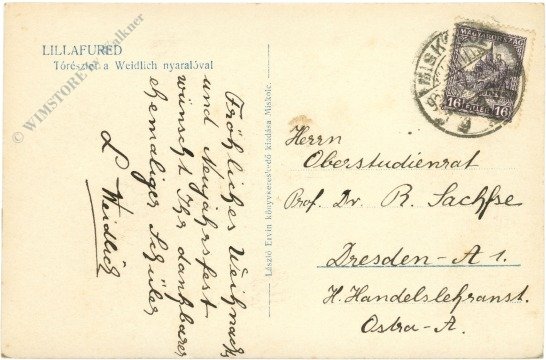 LILLAFURED
Tórészlet a Weidlich nyaralóval
Fröhliches Weihnachts
und Neujahrsfest
wünscht Ihr dankbarer
ehemaliger Schüler
L Weidlich
László Ervin könyvkereskedő kiadása Miskolc.
MAGYARORSZÁG
16 16
MISK
Herrn
Oberstudienrat
Prof. Dr. R. Sachse
Dresden-A 1.
H. Handelslehranst.
Ostra-A.
© WIMSTORE Falkner